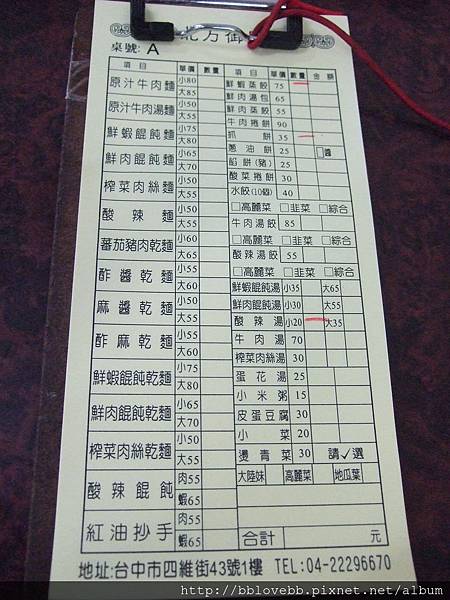 北方御
桌號: A
項目 單價 數量
原汁牛肉麵 小80 大85
原汁牛肉湯麵 小50 大55
鮮蝦餛飩麵 小75 大80
鮮肉餛飩麵 小65 大70
榨菜肉絲麵 小50 大55
酸辣麵 小50 大55
蕃茄豬肉乾麵 小60 大65
酢醬乾麵 小55 大60
麻醬乾麵 小50 大55
酢麻乾麵 小55 大60
鮮蝦餛飩乾麵 小75 大80
鮮肉餛飩乾麵 小65 大70
榨菜肉絲乾麵 小50 大55
酸辣餛飩 肉55 蝦65
紅油抄手 肉55 蝦65
項目 單價 數量 金額
鮮蝦蒸餃 75
鮮肉湯包 65
鮮肉蒸餃 55
牛肉捲餅 90
抓餅 35
蔥油餅 25 □醬
餡餅(豬) 25
酸菜捲餅 30
水餃(10個) 40
□高麗菜 □韭菜 □綜合
牛肉湯餃 85
□高麗菜 □韭菜 □綜合
酸辣湯餃 55
□高麗菜 □韭菜 □綜合
鮮蝦餛飩湯 小35 大65
鮮肉餛飩湯 小30 大55
酸辣湯 小20 大35
牛肉湯 70
榨菜肉絲湯 30
蛋花湯 25
小米粥 15
皮蛋豆腐 30
小菜 20
燙青菜 30 請✓選
大陸妹 高麗菜 地瓜葉
合計 元
地址:台中市四維街43號1樓 TEL:04-22296670
http://bblovebb.pixnet.net/album